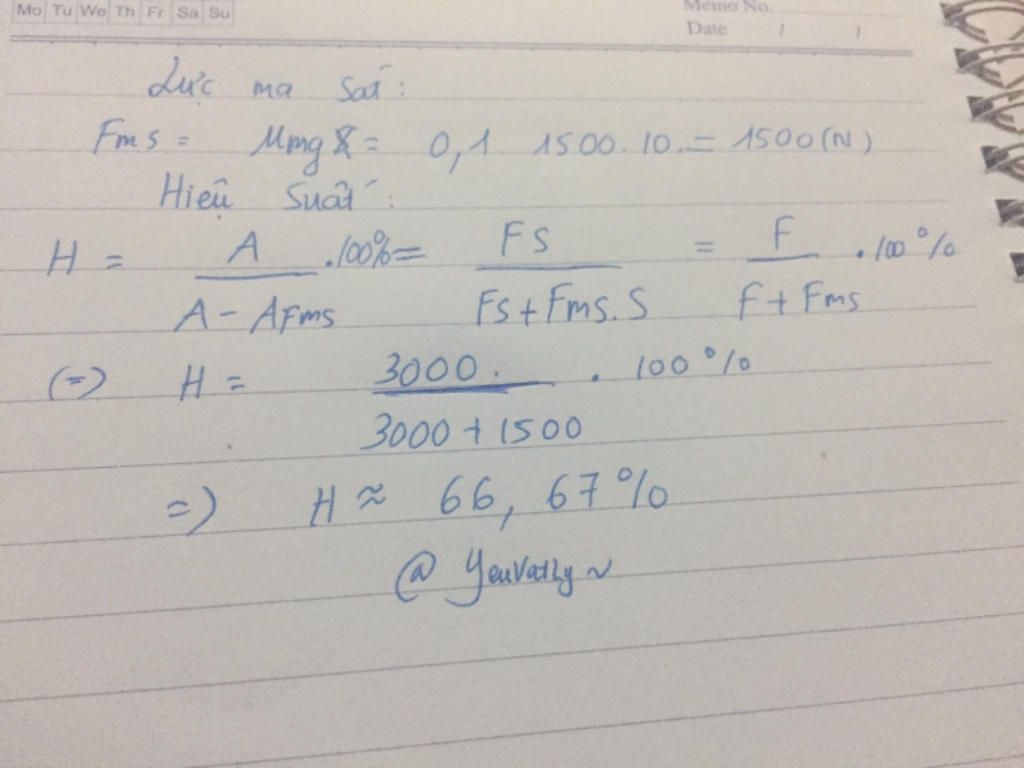 Mo Tu We Th Fr Sa Su
Memo No.
Date / /
Lực ma sát:
Fms = μmg = 0,1 1500. 10. = 1500 (N)
Hiệu suất:
H = A / (A - AFms) .100% = Fs / (Fs + Fms. S) = F / (F + Fms) . 100%
(=) H = 3000. / (3000 + 1500) . 100%
=) H ≈ 66, 67%
@ YeuVatLy ~